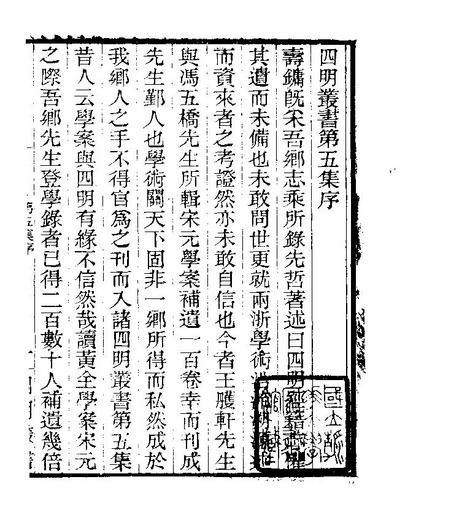 四明叢書第五集序
壽鏞旣宷吾鄉志乘所錄先哲著述曰四明
其遺而未備也未敢問世更就兩浙學術
而資來者之考證然亦未敢自信也今者王䕶軒先生
與馮五橋先生所輯宋元學案補遺一百卷幸而刊成
先生鄞人也學術關天下固非一鄉所得而私然成於
我鄉人之手不得官爲之刊而入諸四明叢書第五集
昔人云學案與四明有緣不信然哉讀黃全學案宋元
之際吾鄉先生登學錄者已得二百數十人補遺幾倍
第五集序